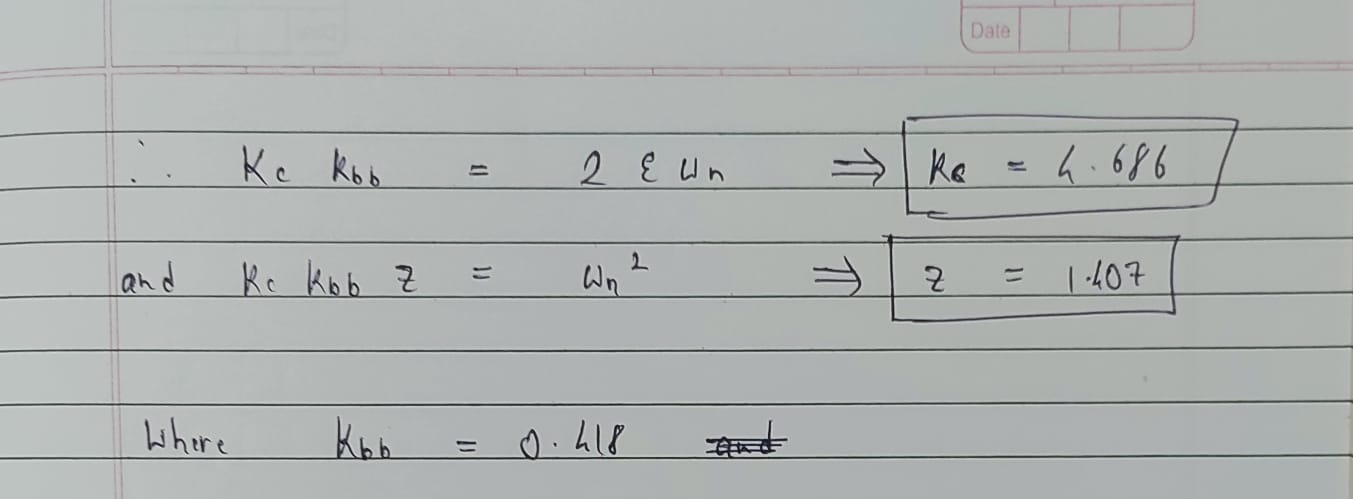 Date
∴ Kc Kbb = 2 ξ ωn ⇒ Kc = 4.686
and Kc Kbb z = ωn² ⇒ z = 1.407
Where Kbb = 0.418 and